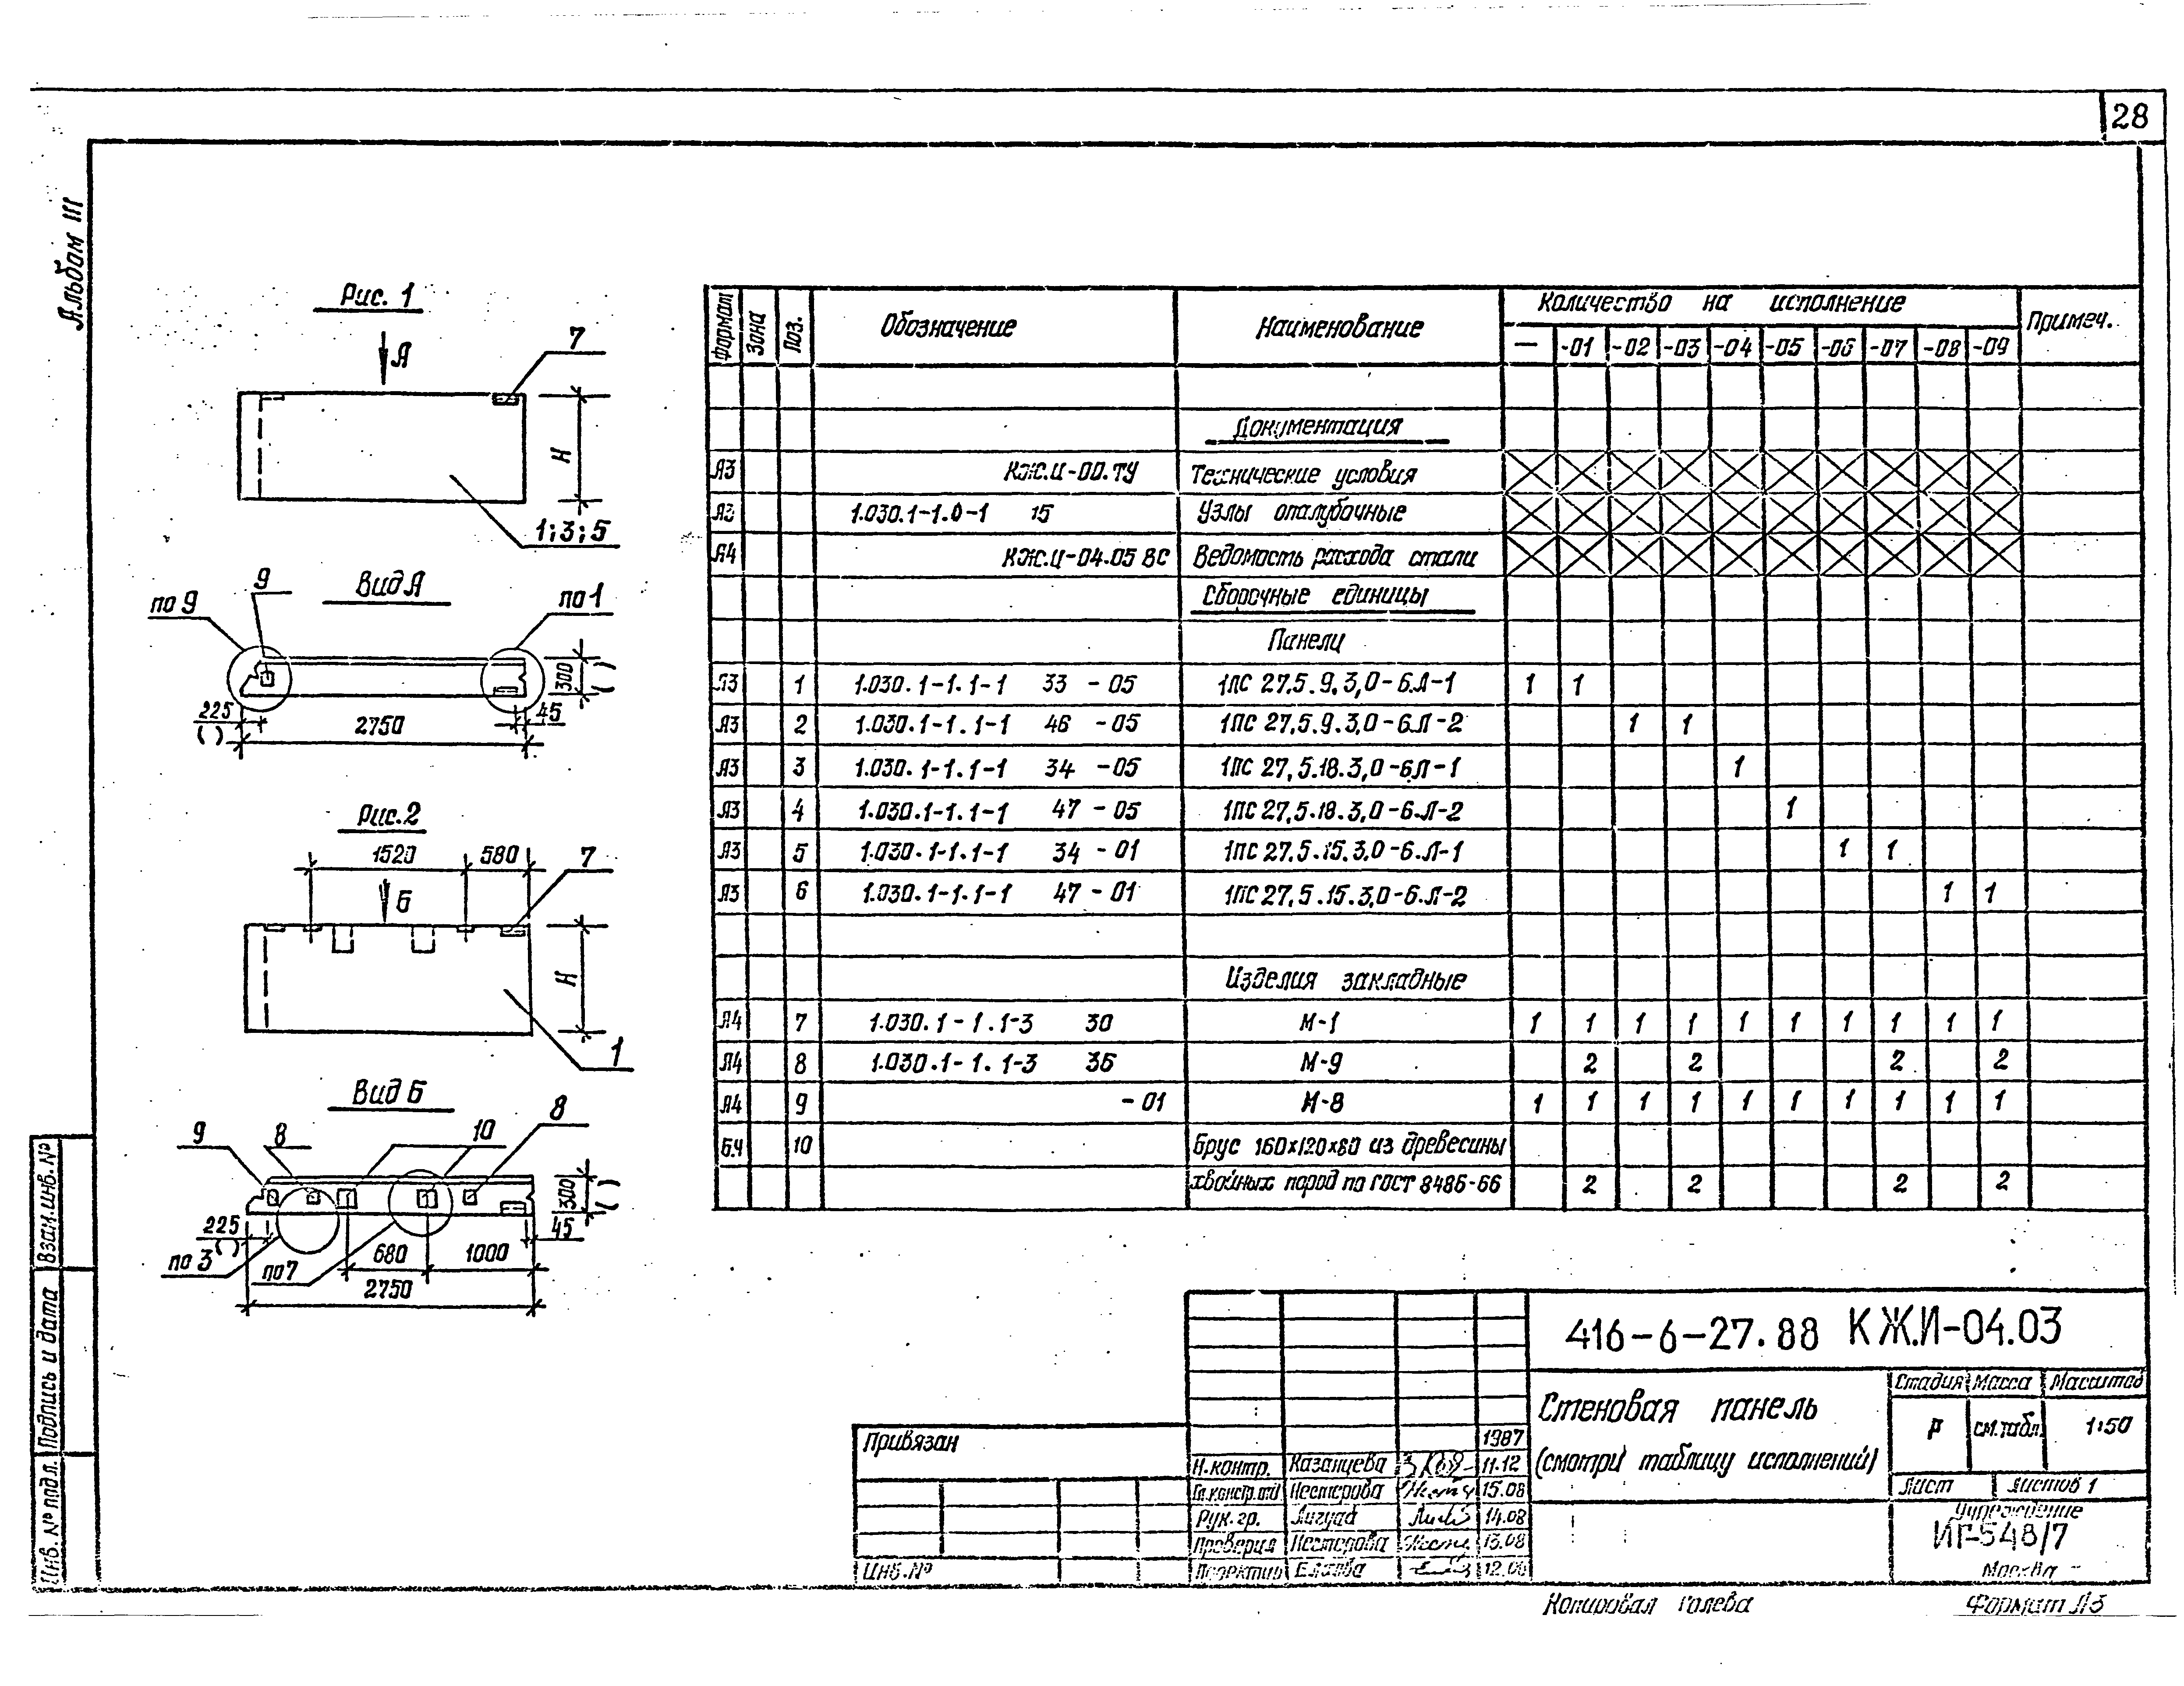 28
Альбом III
Рис. 1
А
7
Н
1; 3; 5
Вид А
9
по 9
по 1
300
( )
225
( )
45
2750
Рис. 2
1520
580
7
Б
Н
1
Вид Б
9
8
10
8
300
( )
225
( )
45
по 3
по 7
680
1000
2750
Формат Зона Поз. Обозначение Наименование Количество на исполнение Примеч.
— -01 -02 -03 -04 -05 -06 -07 -08 -09
Документация
А3 КЖ.И-00.ТУ Технические условия
А3 1.030.1-1.0-1 15 Узлы опалубочные
А4 КЖ.И-04.05 ВС Ведомость расхода стали
Сборочные единицы
Панели
А3 1 1.030.1-1.1-1 33 -05 1ПС 27.5.9.3,0-6.Л-1 1 1
А3 2 1.030.1-1.1-1 46 -05 1ПС 27,5.9.3,0-6.Л-2 1 1
А3 3 1.030.1-1.1-1 34 -05 1ПС 27,5.18.3,0-6Л-1 1
А3 4 1.030.1-1.1-1 47 -05 1ПС 27,5.18.3,0-6.Л-2 1
А3 5 1.030.1-1.1-1 34 -01 1ПС 27.5.15.3.0-6.Л-1 1 1
А3 6 1.030.1-1.1-1 47 -01 1ПС 27,5.15.3,0-6.Л-2 1 1
Изделия закладные
А4 7 1.030.1-1.1-3 30 М-1 1 1 1 1 1 1 1 1 1 1
А4 8 1.030.1-1.1-3 36 М-9 2 2 2 2
А4 9 -01 М-8 1 1 1 1 1 1 1 1 1 1
Б.Ч 10 Брус 160х120х80 из древесины
хвойных пород по ГОСТ 8486-66 2 2 2 2
Взам.инв. №
Подпись и дата
Инв. № подл.
416-6-27.88 КЖ.И-04.03
Стеновая панель
(смотри таблицу исполнений)
Стадия Масса Масштаб
Р см.табл. 1:50
Лист Листов 1
Учреждение
ИГ-548/7
Москва
Привязан
Инв.№
1987
Н.контр. Казанцева 11.12
Гл.констр.отд Нестерова 15.08
Рук.гр. Лигуда 14.08
Проверил Нестерова 13.08
12.08
Копировал Голева
Формат А3